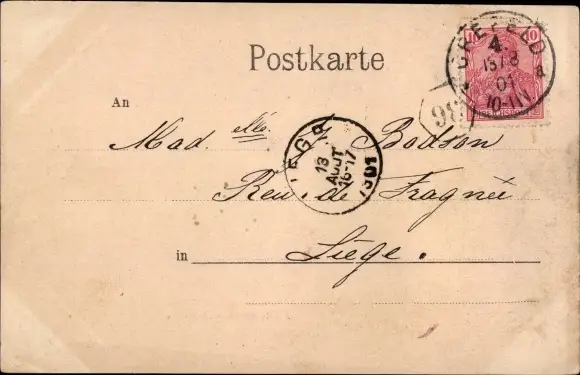 Postkarte
10
CREFELD
4.
13/8
01
10-11V.
* d
98
An
Mad. elle. J. Bodson
LIEGE
13
AOUT
16-17
1901
Rue. de Fragnée
in Liége.